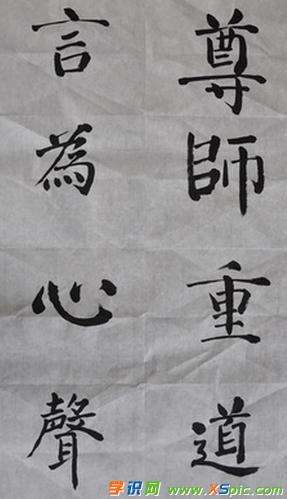 尊師重道
言為心聲
学识网 www.XSpic.com